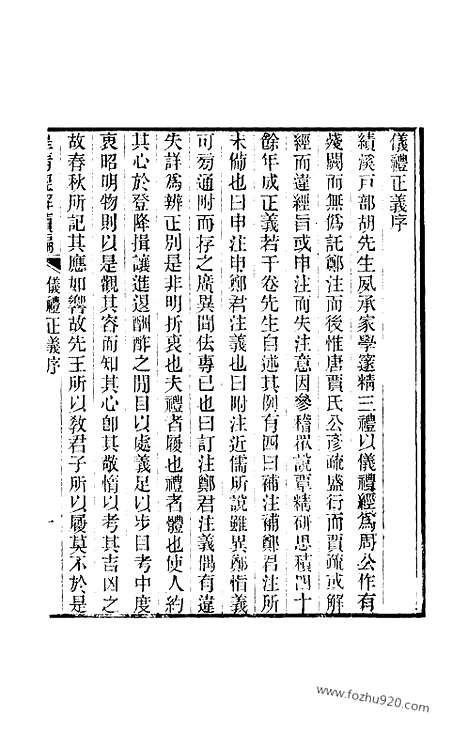 儀禮正義序
績溪戸部胡先生夙承家學邃精三禮以儀禮經爲周公作有
殘闕而無僞託鄭注而後惟唐賈氏公彦疏盛行而賈疏或解
經而違經旨或申注而失注意因參稽衆說覃精研思積四十
餘年成正義若干卷先生自述其例有四曰補注補鄭君注所
未備也曰申注申鄭君注義也曰附注近儒所說雖異鄭恉義
可旁通附而存之廣異聞佉專已也曰訂注鄭君注義偶有違
失詳爲辨正別是非明折衷也夫禮者履也禮者體也使人約
其心於登降揖讓進退酬酢之間目以處義足以步目考中度
衷昭明物則以是觀其容而知其心卽其敬惰以考其吉凶之
故春秋所記其應如響故先王所以敎君子所以履莫不於是
皇清經解續編 儀禮正義序 一
www.fozhu920.com